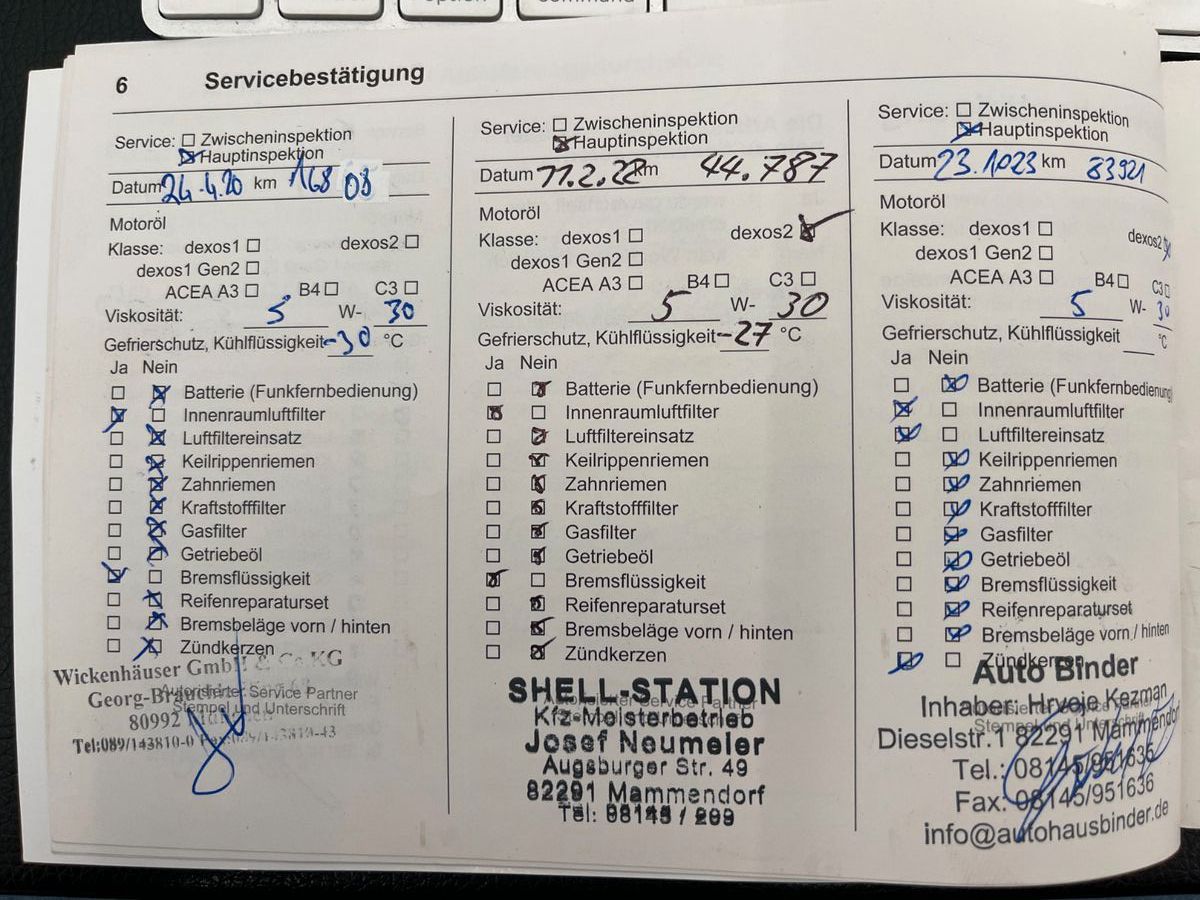 option
command
6 Servicebestätigung
Service: Zwischeninspektion
Hauptinspektion
Datum 24.4.20 km 168 03
Motoröl
Klasse: dexos1 dexos2
dexos1 Gen2
ACEA A3 B4 C3
Viskosität: 5 W- 30
Gefrierschutz, Kühlflüssigkeit -30 °C
Ja Nein
Batterie (Funkfernbedienung)
Innenraumluftfilter
Luftfiltereinsatz
Keilrippenriemen
Zahnriemen
Kraftstofffilter
Gasfilter
Getriebeöl
Bremsflüssigkeit
Reifenreparaturset
Bremsbeläge vorn / hinten
Zündkerzen
Wickenhäuser GmbH & Co KG
Autorisierter Service Partner
Stempel und Unterschrift
80992
Tel:089/143810-0 Fax:089/143810-43
Service: Zwischeninspektion
Hauptinspektion
Datum 11.2.22 km 44.787
Motoröl
Klasse: dexos1 dexos2
dexos1 Gen2
ACEA A3 B4 C3
Viskosität: 5 W- 30
Gefrierschutz, Kühlflüssigkeit -27 °C
Ja Nein
Batterie (Funkfernbedienung)
Innenraumluftfilter
Luftfiltereinsatz
Keilrippenriemen
Zahnriemen
Kraftstofffilter
Gasfilter
Getriebeöl
Bremsflüssigkeit
Reifenreparaturset
Bremsbeläge vorn / hinten
Zündkerzen
SHELL-STATION
Kfz-Meisterbetrieb
Josef Neumeier
Augsburger Str. 49
82291 Mammendorf
Tel: 08145 / 209
Service: Zwischeninspektion
Hauptinspektion
Datum 23.1023 km 83921
Motoröl
Klasse: dexos1 dexos2
dexos1 Gen2
ACEA A3 B4 C3
Viskosität: 5 W- 30
Gefrierschutz, Kühlflüssigkeit °C
Ja Nein
Batterie (Funkfernbedienung)
Innenraumluftfilter
Luftfiltereinsatz
Keilrippenriemen
Zahnriemen
Kraftstofffilter
Gasfilter
Getriebeöl
Bremsflüssigkeit
Reifenreparaturset
Bremsbeläge vorn / hinten
Zündkerzen
Auto Binder
Inhaber: Hrvoje Kezman
Dieselstr.1 82291 Mammendorf
Tel.: 08145/951635
Fax: 08145/951636
info@autohausbinder.de